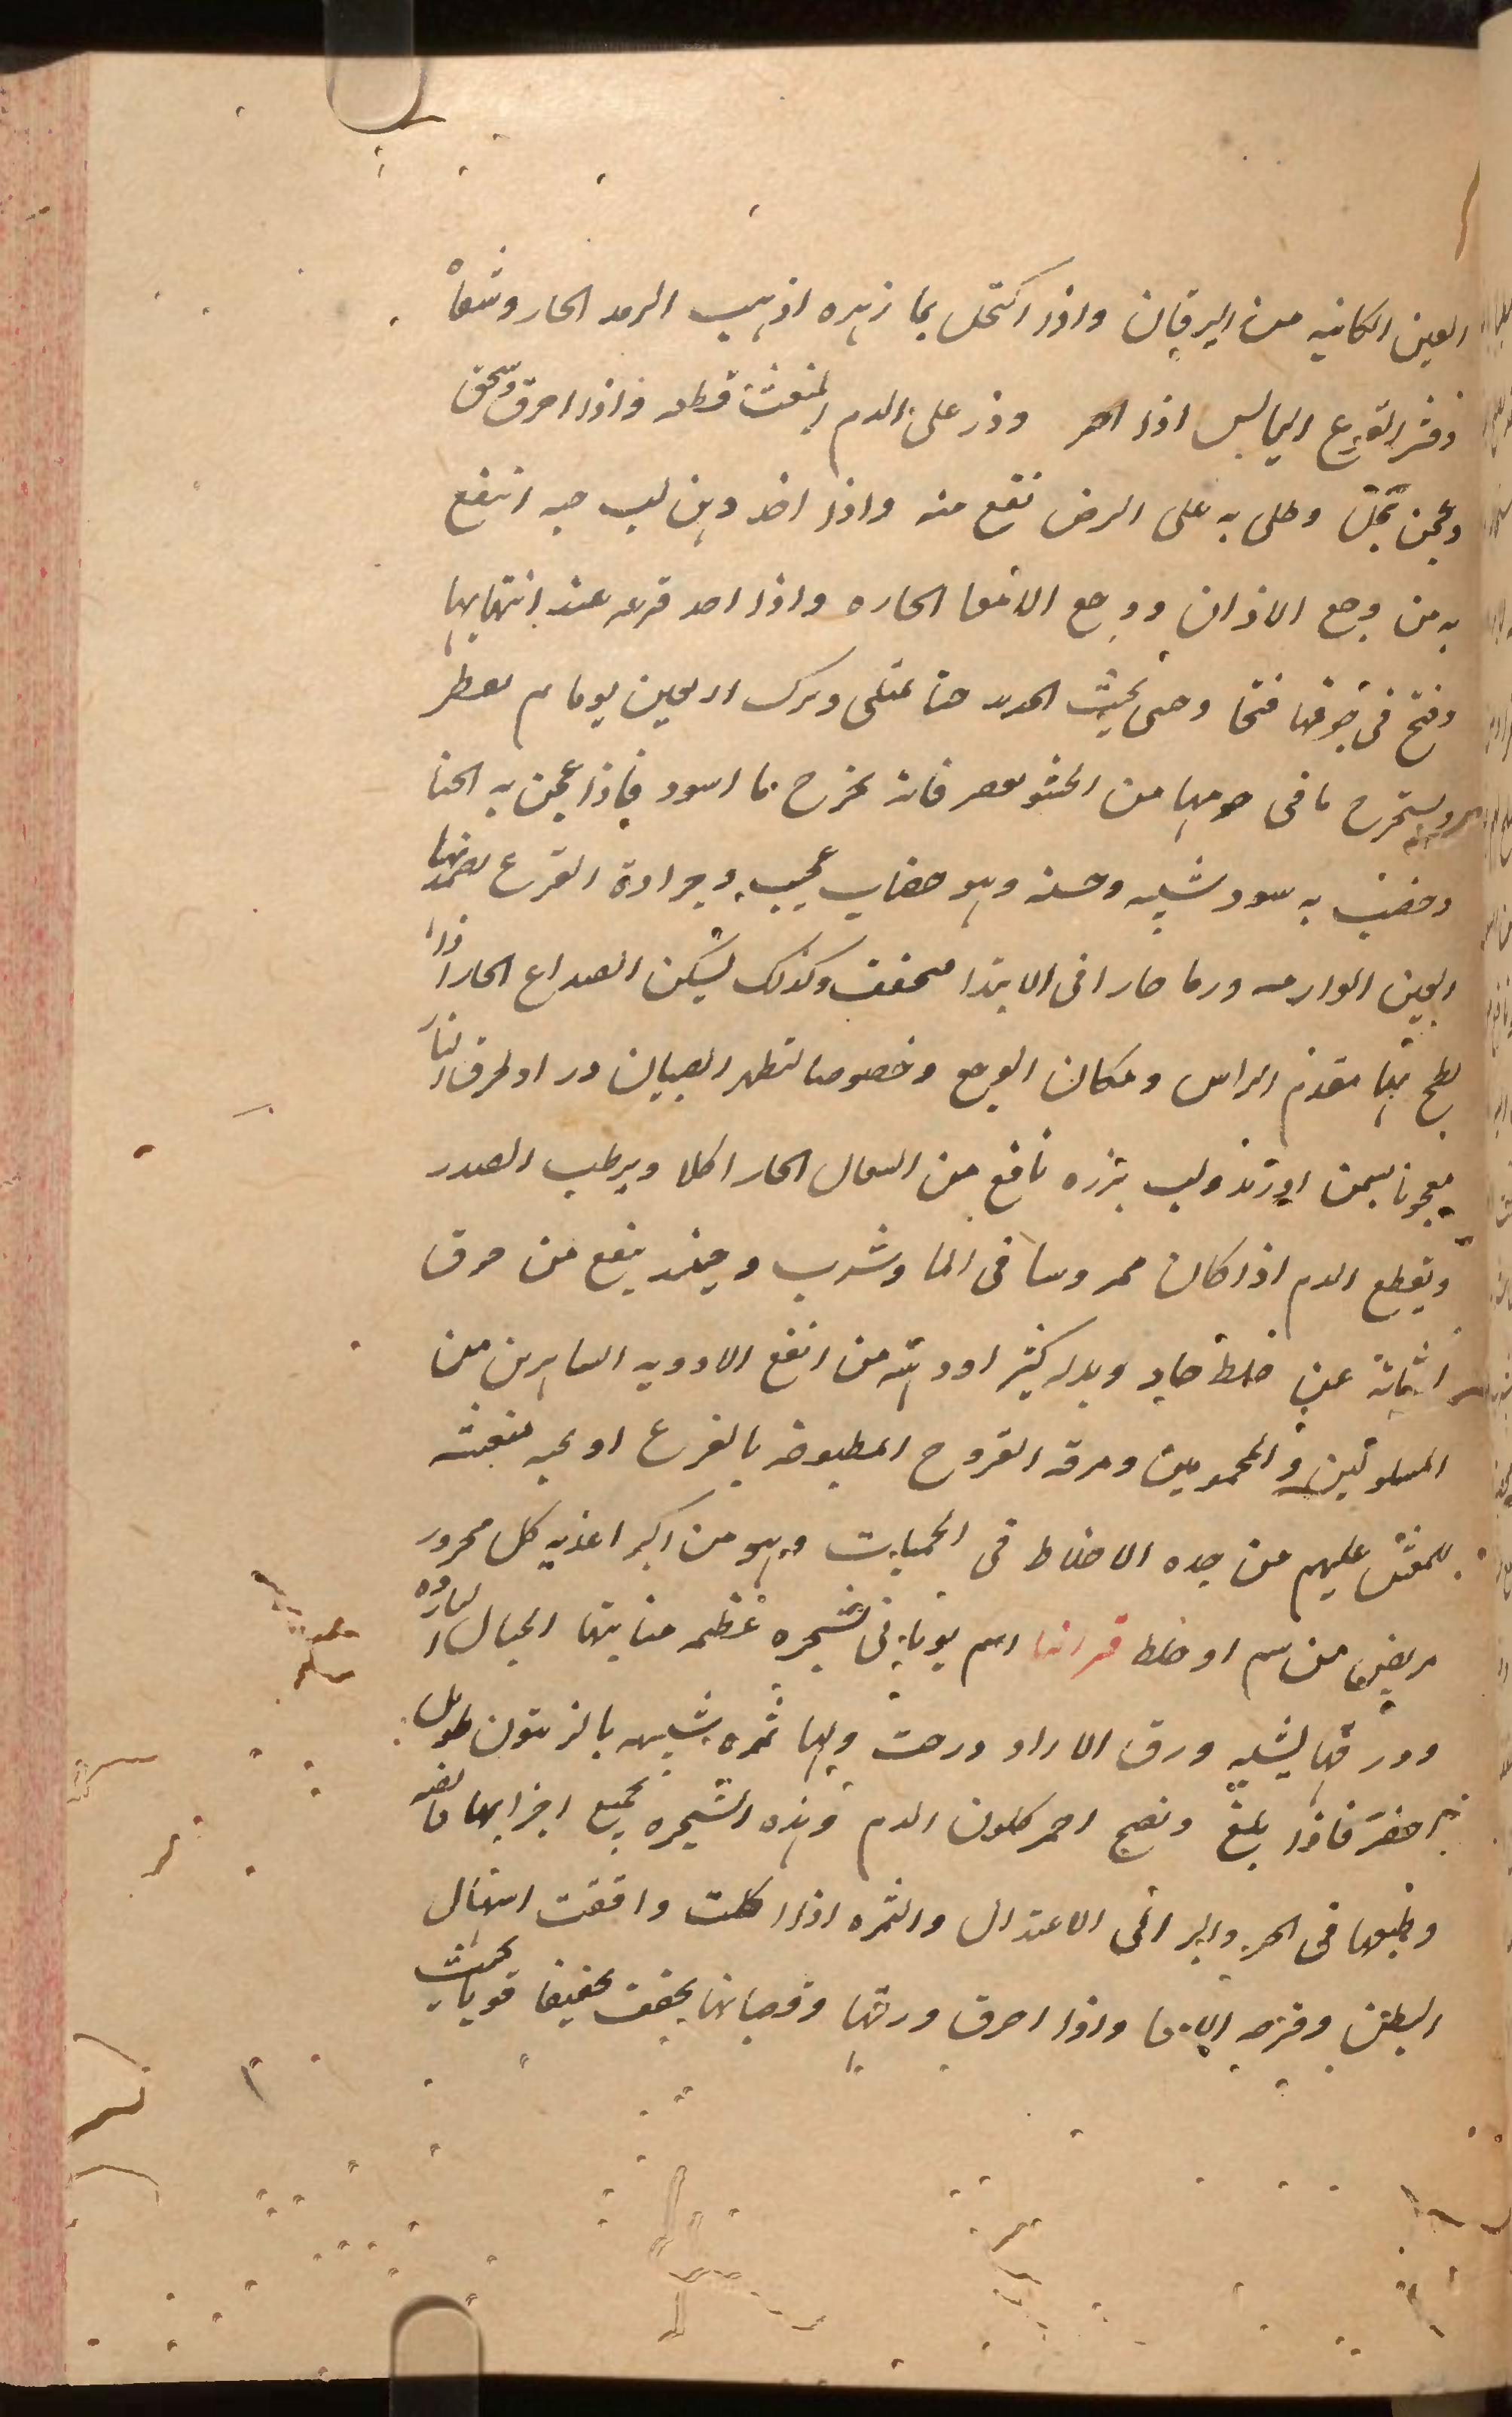 العين الكاينه من اليرقان واذا اكتحل بما زهره اذهب الرمد الحار وشفاه
وقشر القرع اليابس اذا احر وذر على الدم المنعث قطعه واذا احرق وسحق
وعجن بخل وطلى به على البرص نفع منه واذا اخد دهن لب حبه انتفع
به من وجع الاذان ووجع الامعا الحاره واذا احد قرعه عند انتهايها
وفتح فى جوفها فتحا وحشى بخبث الحديد حتا تمتلى وترك اربعين يوما ثم تعطر
ويستخرج ما فى جوفها من الحشو يعصر فانه يخرج ما اسود فاذا عجن به الحنا
وخضب به سود شيبه وحسنه وهو خضاب عجيب وجرادة القرع يضمد بها
العين الوارمه ورما حارا فى الابتدا فيخفف وكذلك يسكن الصداع الحار اذا
لطخ بها مقدم الراس ومكان الوجع وخصوصا لتظهر الصبيان در او لحرق النار
معجونا بسمن اوزبد ولب بزره نافع من السعال الحار اكلا ويرطب الصدر
ويقطع الدم اذا كان ممروسا فى الما وشرب وحينئذ ينفع من حرق
المثانة عن خلط حاد وبدله كثيرا ودهنه من انفع الادويه السابرين من
المسلولين والمحمومين ومرقه الفروج المطبوخه بالقرع او لحمه منعشه
للمغشى عليهم من حده الاخلاط فى الحميات وهو من اكبر اغذيه كل محرور
مريض من سم او خلط قرانيا اسم يونانى لشجره عظيمه منابتها الجبال البارده
وورقها يشبه ورق الازاد درخت ولها ثمره شبيهه بالزيتون طويل
اخضر فاذا بلغ ونضج احمر كلون الدم وهذه الشجره بجميع اجزايها قابضه
وطبعها فى الحر والبر الى الاعتدال والثمره اذا اكلت وافقت اسهال
البطن وقرحه الامعا واذا احرق ورقها وقضبانها يجفف تجفيفا قويا بحيث